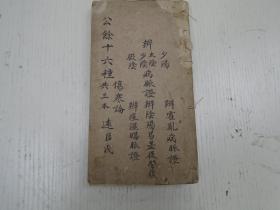 辨霍亂病脈證
辨少陽太陰少陰厥陰病脈證
辨陰陽易差後勞復
辨痙濕暍脈證
傷寒論
公餘十六種
共三本